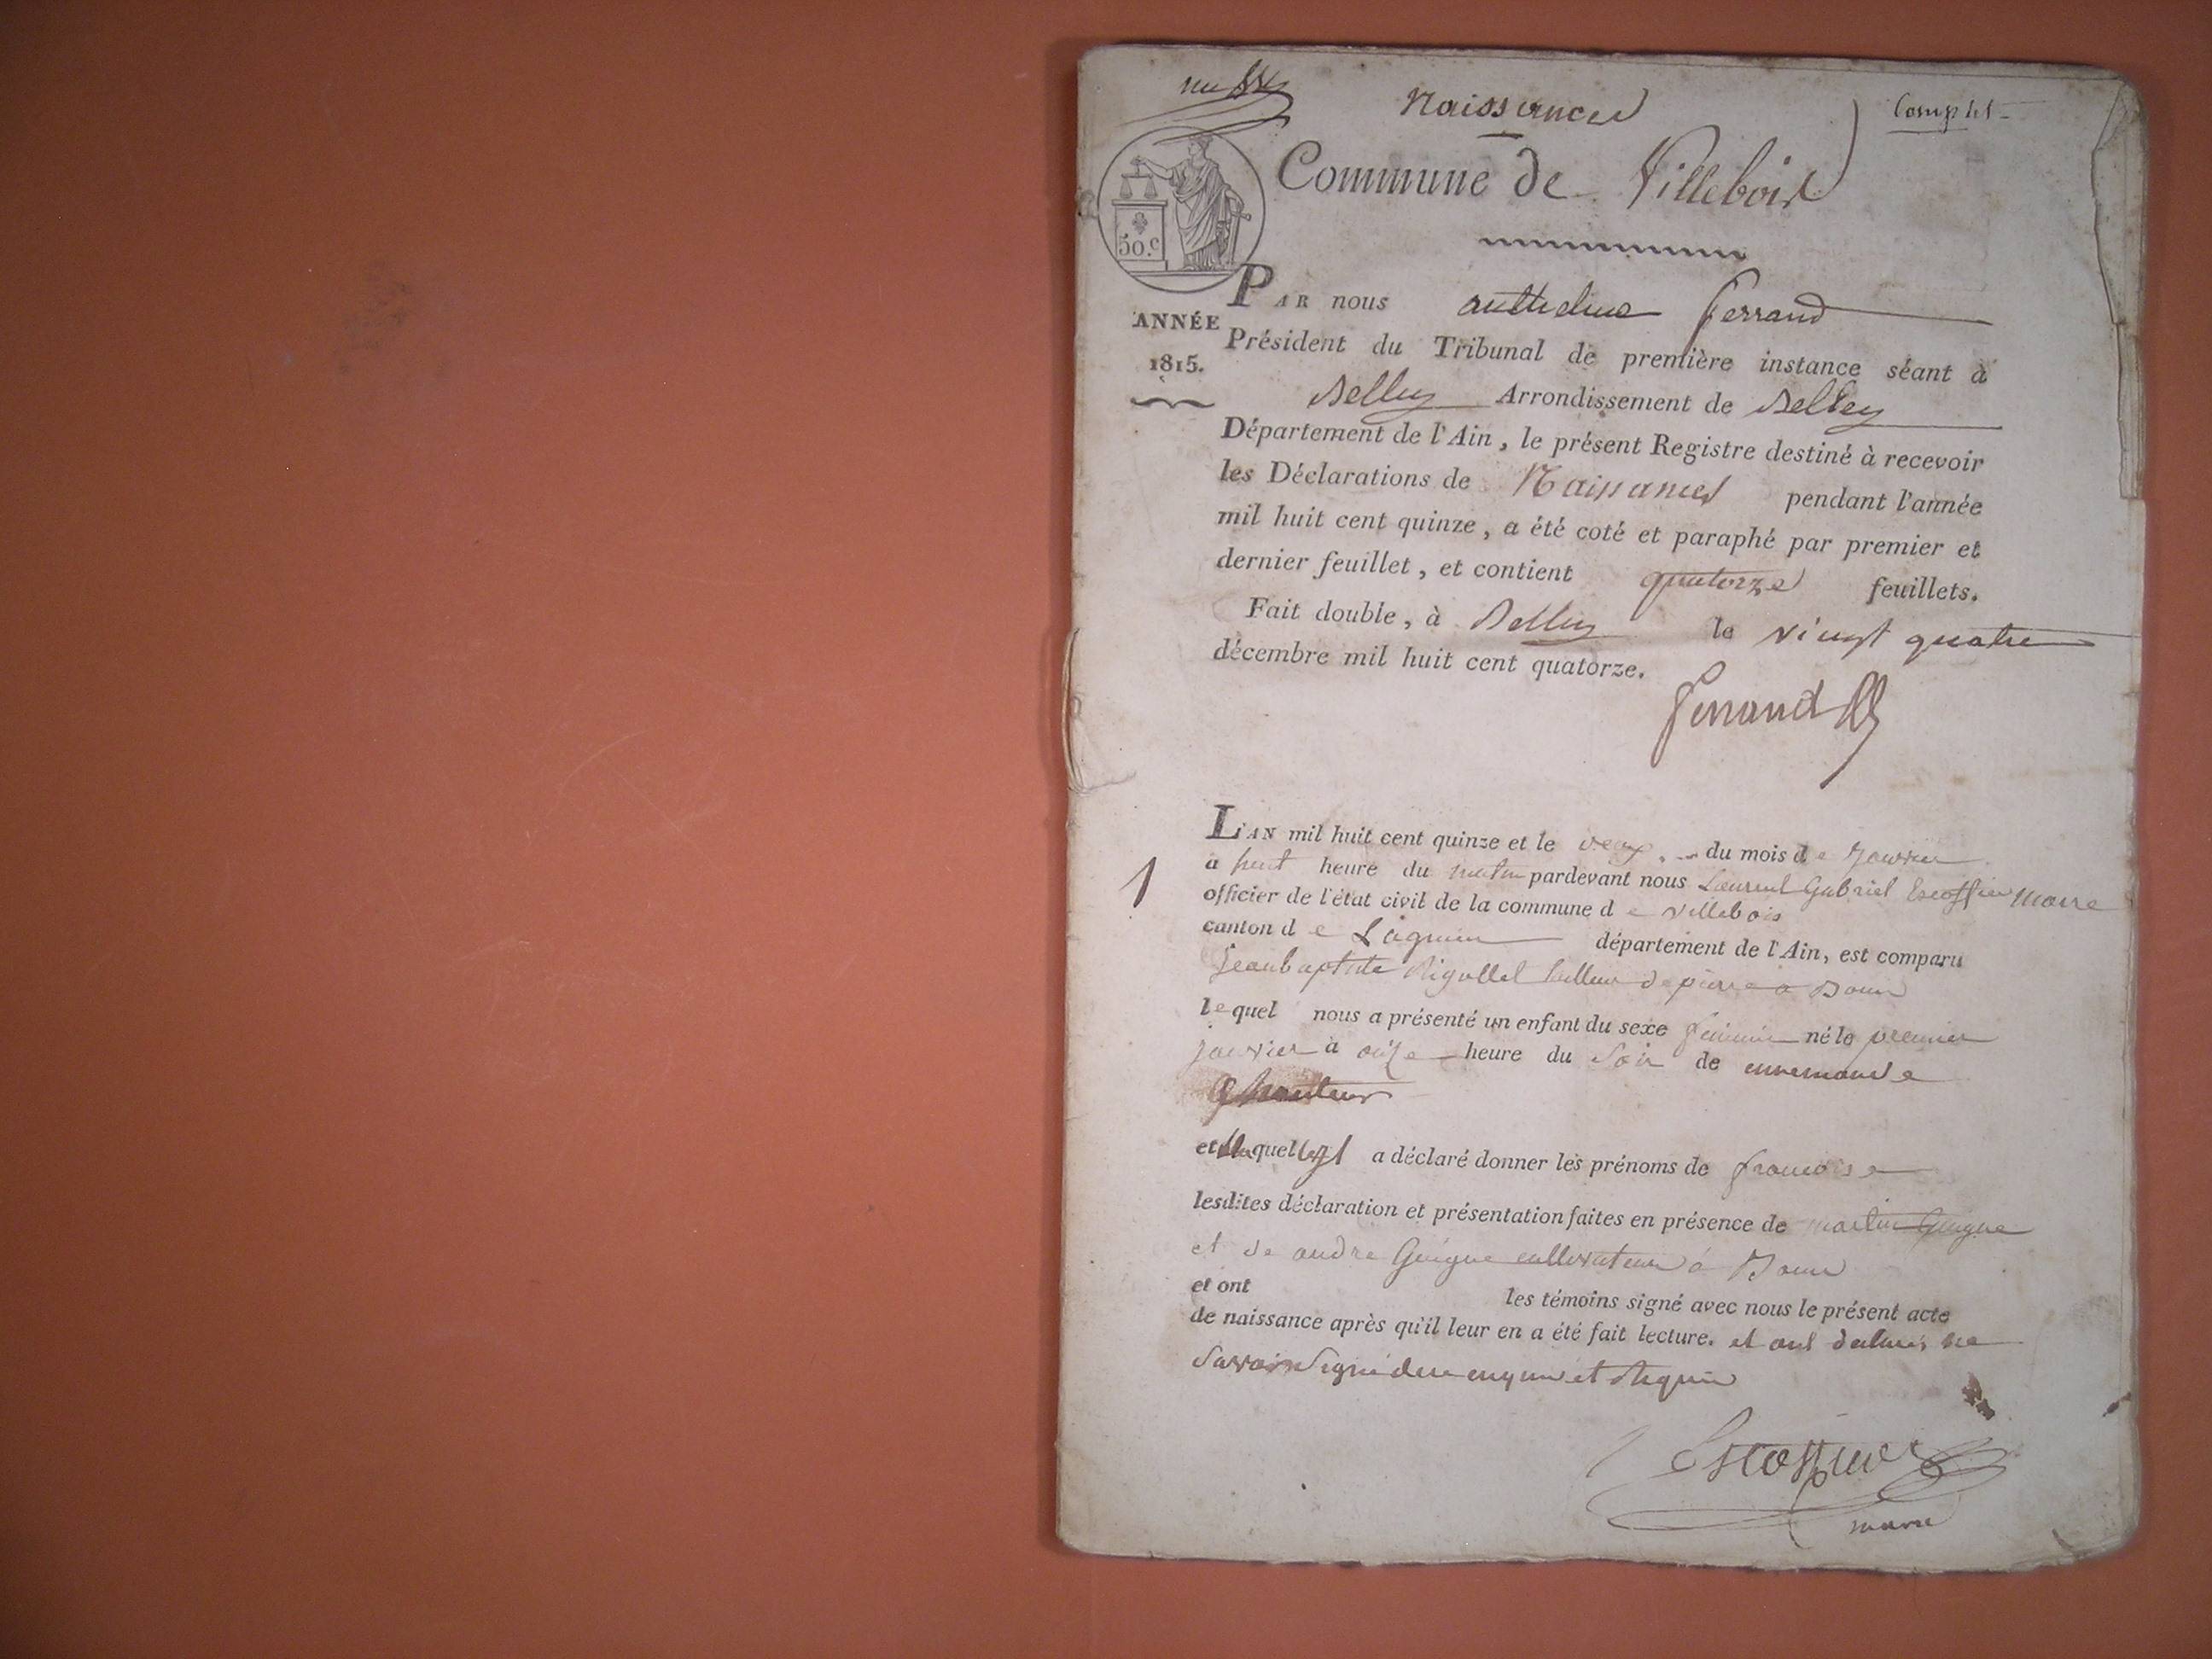 Naissances
Complet
Commune de Villebois
50.c
PAR nous anthelme ferrand
ANNÉE
1815.
Président du Tribunal de première instance séant à
Belley Arrondissement de Belley
Département de l'Ain, le présent Registre destiné à recevoir
les Déclarations de Naissances pendant l'année
mil huit cent quinze, a été coté et paraphé par premier et
dernier feuillet, et contient quatorze feuillets.
Fait double, à Belley le vingt quatre
décembre mil huit cent quatorze.
ferrand
L'AN mil huit cent quinze et le deux du mois de janvier
1
a huit heure du matin pardevant nous Laurent Gabriel Escoffier Maire
officier de l'état civil de la commune de villebois
canton de Lagnieu département de l'Ain, est comparu
Jean baptiste Rigollet tailleur de pierre a
lequel nous a présenté un enfant du sexe feminin né le premier
janvier à onze heure du soir de ennemonde
et quel a déclaré donner les prénoms de francoise
lesdites déclaration et présentation faites en présence de martin Guigue
et de andre Guigue cultivateur à
et ont les témoins signé avec nous le présent acte
de naissance après qu'il leur en a été fait lecture. et ont declaré ne
savoir signé de ce enquis et requis
Escoffier
maire